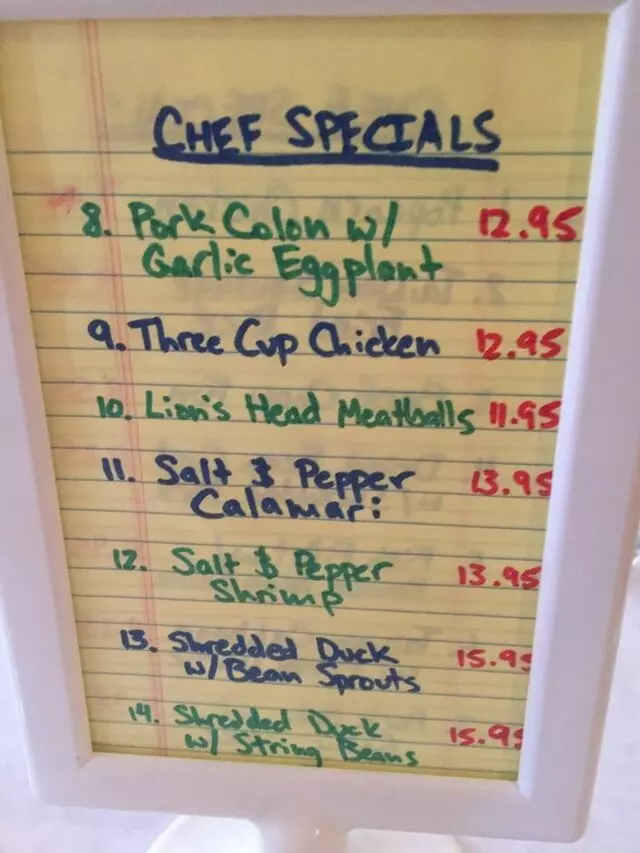 CHEF SPECIALS
8. Pork Colon w/ 12.95
Garlic Eggplant
9. Three Cup Chicken 12.95
10. Lion's Head Meatballs 11.95
11. Salt & Pepper 13.95
Calamari
12. Salt & Pepper 13.95
Shrimp
13. Shredded Duck 15.95
w/ Bean Sprouts
14. Shredded Duck 15.95
w/ String Beans